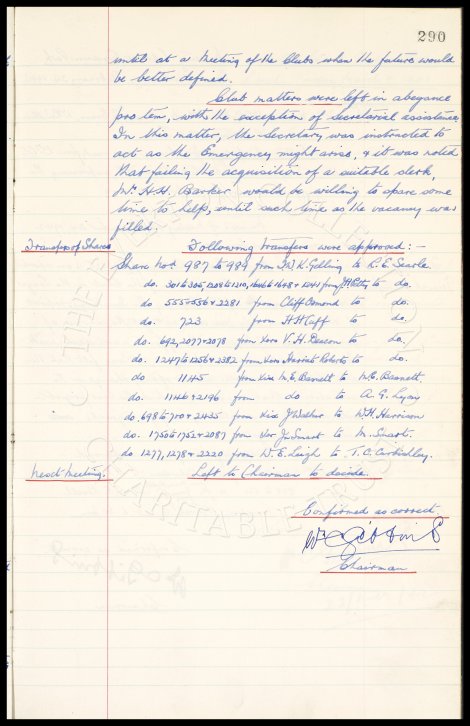 290
until at a Meeting of the Clubs when the future would
be better defined.
Club matters were left in abeyance
pro tem, with the exception of Secretarial assistance
In this matter, the Secretary was instructed to
act as the Emergency might arise, & it was noted
that failing the acquisition of a suitable clerk,
Mr. H.H. Barker would be willing to spare some
time to help, until such time as the vacancy was
filled.
Transfer of Shares Following transfers were approved:-
Share nos 987 to 989 from K. Gelling to R.E. Searle
do. 301 to 305, 1208 to 1210, from to do.
do 555 to 556 & 2281 from Cliff Osmond to do.
do. 723 from H H Cuff to do.
do. 692, 2077 & 2078 from V.H. Deacon to do.
do. 1247 to 1256 & 2382 from Harriet Roberts to do.
do 1145 from M.E. Barnett to Barnett.
do. 1144 & 2196 from do to A.G. Lyas
do. 698 to 700 & 2425 from J Walker to W.H. Harrison
do. 1750 to 1752 & 2087 from Smart to M. Smart.
do 1277, 1278 & 2220 from W.E. Leigh to T.C.
Next Meeting. Left to Chairman to decide.
Confirmed as correct.
Chairman
THE
CHARITABLE TRUST